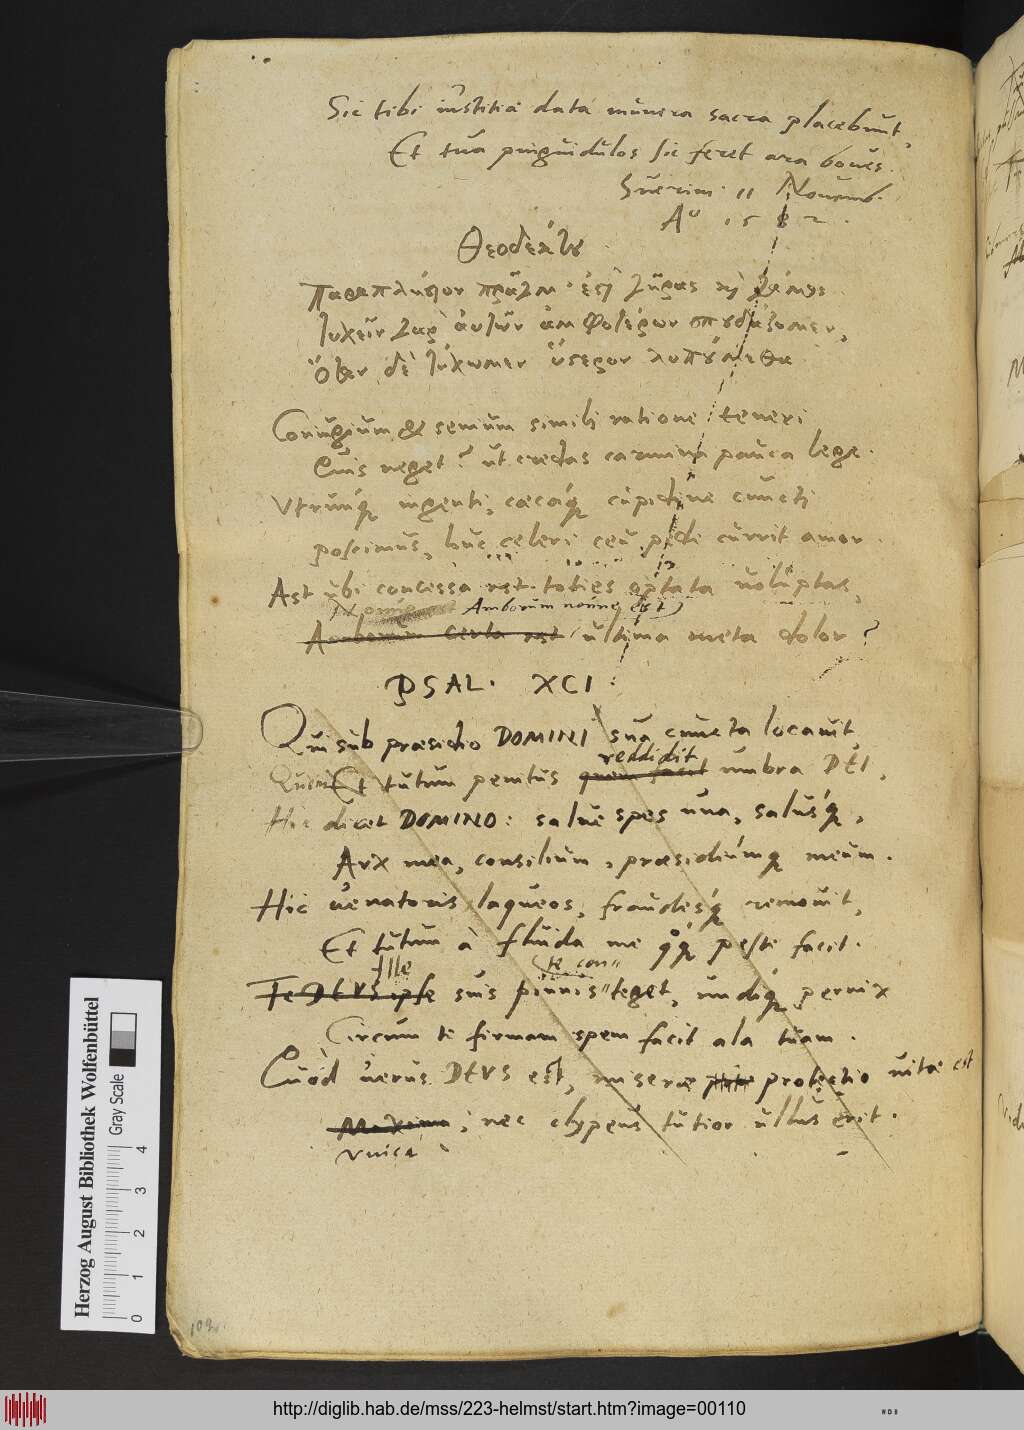 Sic tibi iustitiæ data munera sacra placebunt,
Et tua pinguidulos sic feret ara boues.
Suerini 11 Nouemb.
Aº 1582.
Θεοδέκτου
γήρας καὶ γάμος
τυχεῖν γὰρ αὐτῶν ἀμφοτέρων σπουδάζομεν,
Ὅταν δὲ τύχωμεν ὕστερον λυπούμεθα
Coniugium & senium simili ratione teneri
Quis neget? ut credas carmina pauca lege.
Vtrumq́ ingenti, cæcaq́ cupidine cuncti
poscimus, huc celeri ceu pede currit amor.
Ast ubi concessa est toties optata uoluptas,
Amborum nonne est
Amborum certa est ultima meta dolor?
PSAL. XCI.
Qui sub præsidio DOMINI sua cuncta locauit
reddidit
Et tutum penitus quem facit umbra DEI,
Hic dicet DOMINO: salue spes una, salusq́,
Arx mea, consilium, præsidiumq́ meum.
Hic uenatoris laqueos, fraudesq́ remouit,
Et tutum à fluida me q́q́ peste facit.
Ille te con"
Te DEVS ipse suis pinnis "teget, undiq́ pernix
Circum te firmam spem facit ala tuam.
Quòd uerus DEVS est, miseræ protectio uitæ est
Maxima; nec clypeus tutior ullus erit.
Vnica
109
Herzog August Bibliothek Wolfenbüttel
Gray Scale
0 1 2 3 4
http://diglib.hab.de/mss/223-helmst/start.htm?image=00110